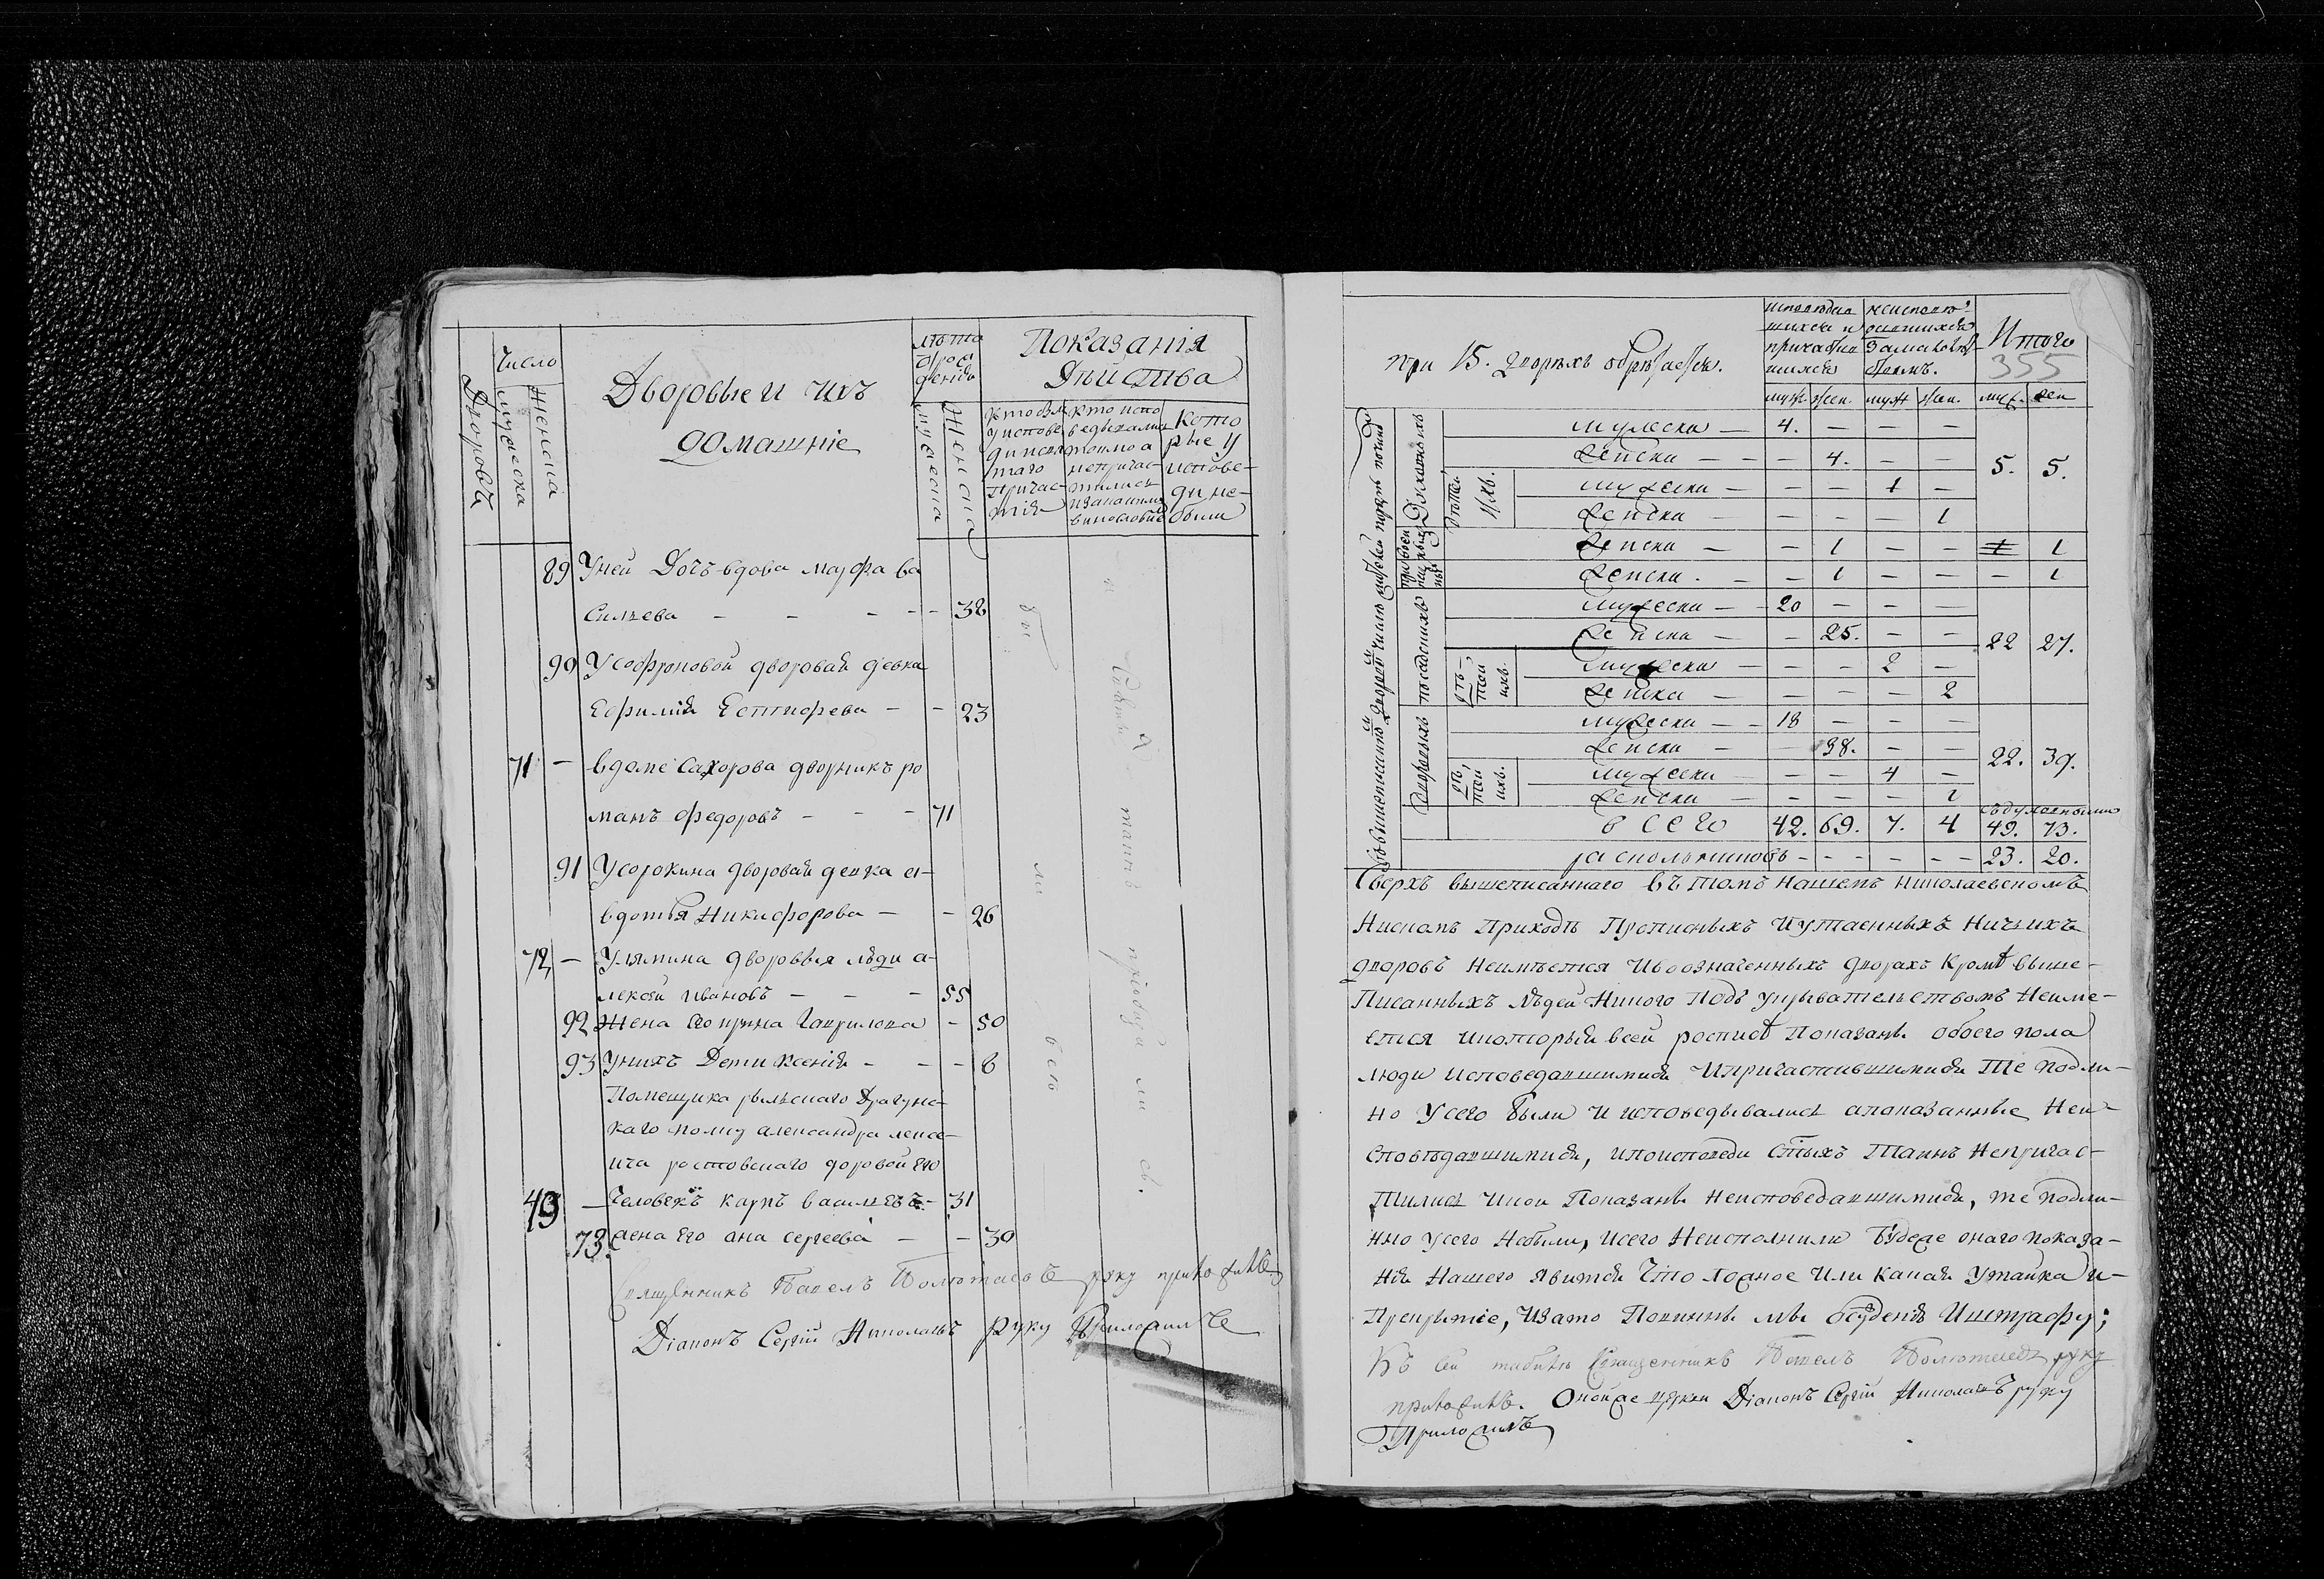 Число
Дворовъ
мужеска
женска
Дворовые и ихъ
домашнїе
лѣта
отрож
денїя
мужеска
Женска
Показанїя
Дѣиства
Кто былъ
у испове
ди и свя
таго
причас-
тїя
Кто испо
ведывался
токмо а
непричас-
тились
и за какимъ
винословїе
Кото
рые у
испове-
ди не-
были
89 Уней Дочь вдова марфа ва
сильева - - - - 32
90 Усофроновой дворовая девка
Ефимия Евтифеева - - 23
71 - вдоме Сахорова дворникъ ро
манъ федоровъ - - - 71
91 Усорокина дворовая девка ев-
вдотья Никифорова - - 26
72 - Улямина дворовыя люди а-
лексѣй Ивановъ - - - 55
92 Жена его ирина Гаврилова - 50
93 Унихъ Дети Ксенїя - - - 8
Помещика рыльскаго Драгунс-
каго полку александра
ростовскаго дворовой его
49 - Человекъ карпъ васильевъ - 31
73. жена его ана сергеева - - 30
бы
ли
всѣ
и святыхъ таинъ прїобщились
Священникъ Павелъ Полютаевъ руку приложилъ
Дїаконъ Сергїй Николаевъ руку Приложилъ
при 15. дворѣхъ обрѣтается.
исповѣда
вшихся и
причасти
вшихся
неисповѣ
давшихся
Замалолѣт
ствомъ.
Итого
355
муж. жен. муж. жен. муж. жен
Духовныхъ
мужеска - 4. - - -
женска - - - 4. - -
5. 5.
дѣтей
ихъ.
мужеска - - - 1 -
женска - - - - 1
женска - - 1 - - 1 1
женска. - - 1 - - - 1
посадскихъ
мужеска - - 20 - - -
женска - - 25. - -
22 27.
дѣ-
тей
ихъ
мужеска - - - 2 -
женска - - - - 2
Дворовыхъ
мужеска - - 18 - - -
женска - - 38. - -
22. 39.
дѣ-
тей
ихъ.
мужеска - - - 4 -
женска - - - - 1
съ духовными
всего 42. 69. 7. 4 49. 73.
раскольниковъ - - - - - - 23. 20.
Сверхъ вышеписаннаго въ томъ нашемъ Николаевскомъ
Нискомъ Приходѣ Прописныхъ и утаенныхъ Ничьихъ
дворовъ Неимѣется ивоозначенныхъ дворахъ Кромѣ выше-
Писанныхъ людей Никого Подъ укрывательствомъ Неиме-
ется икоторыи всей росписѣ Показаны обоего пола
люди исповедавшимися ипричастившимися Те подли-
но усего были и исповедывались апоказанные Неи-
споведавшимися, ипоисповеди Стыхъ Таинъ Непричас-
тились икои Показаны Неисповедавшимися, те подли-
нно усего Небыли, исего Неисполнили Будеже онаго показа-
нїя нашего явится Что ложное Или какая Утайка и-
Прикрытїе, изато Повинны мы осужденїя Иштрафу;
Къ сей табели Священникъ Павелъ Полютаевъ руку
приложилъ. Онойже церкви Дїаконъ Сергїй Николаевъ руку
Приложилъ